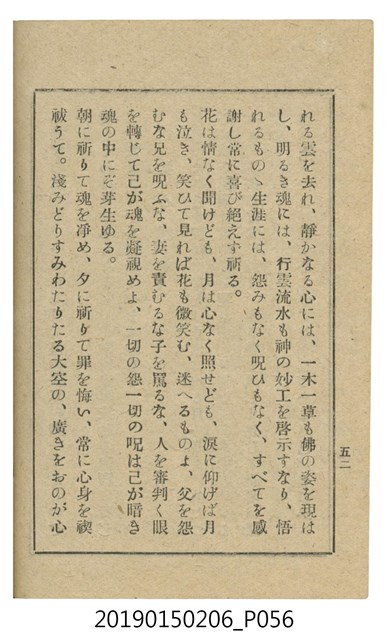 れる雲を去れ、靜かなる心には、一木一草も佛の姿を現は
し、明るき魂には、行雲流水も神の妙工を啓示すなり、悟
れるものゝ生涯には、怨みもなく呪ひもなく、すべてを感
謝し常に喜び絶えず祈る。
花は情なく聞けども、月は心なく照せども、淚に仰げば月
も泣き、笑ひて見れば花も微笑む、迷へるものよ、父を怨
むな兄を呪ふな、妻を責むるな子を罵るな、人を審判く眼
を轉じて己が魂を凝視めよ、一切の怨一切の呪は己が暗き
魂の中にぞ芽生ゆる。
朝に祈りて魂を凈め、夕に祈りて罪を悔い、常に心身を禊
祓うて。淺みどりすみわたりたる大空の、廣きをおのが心
五二
20190150206_P056